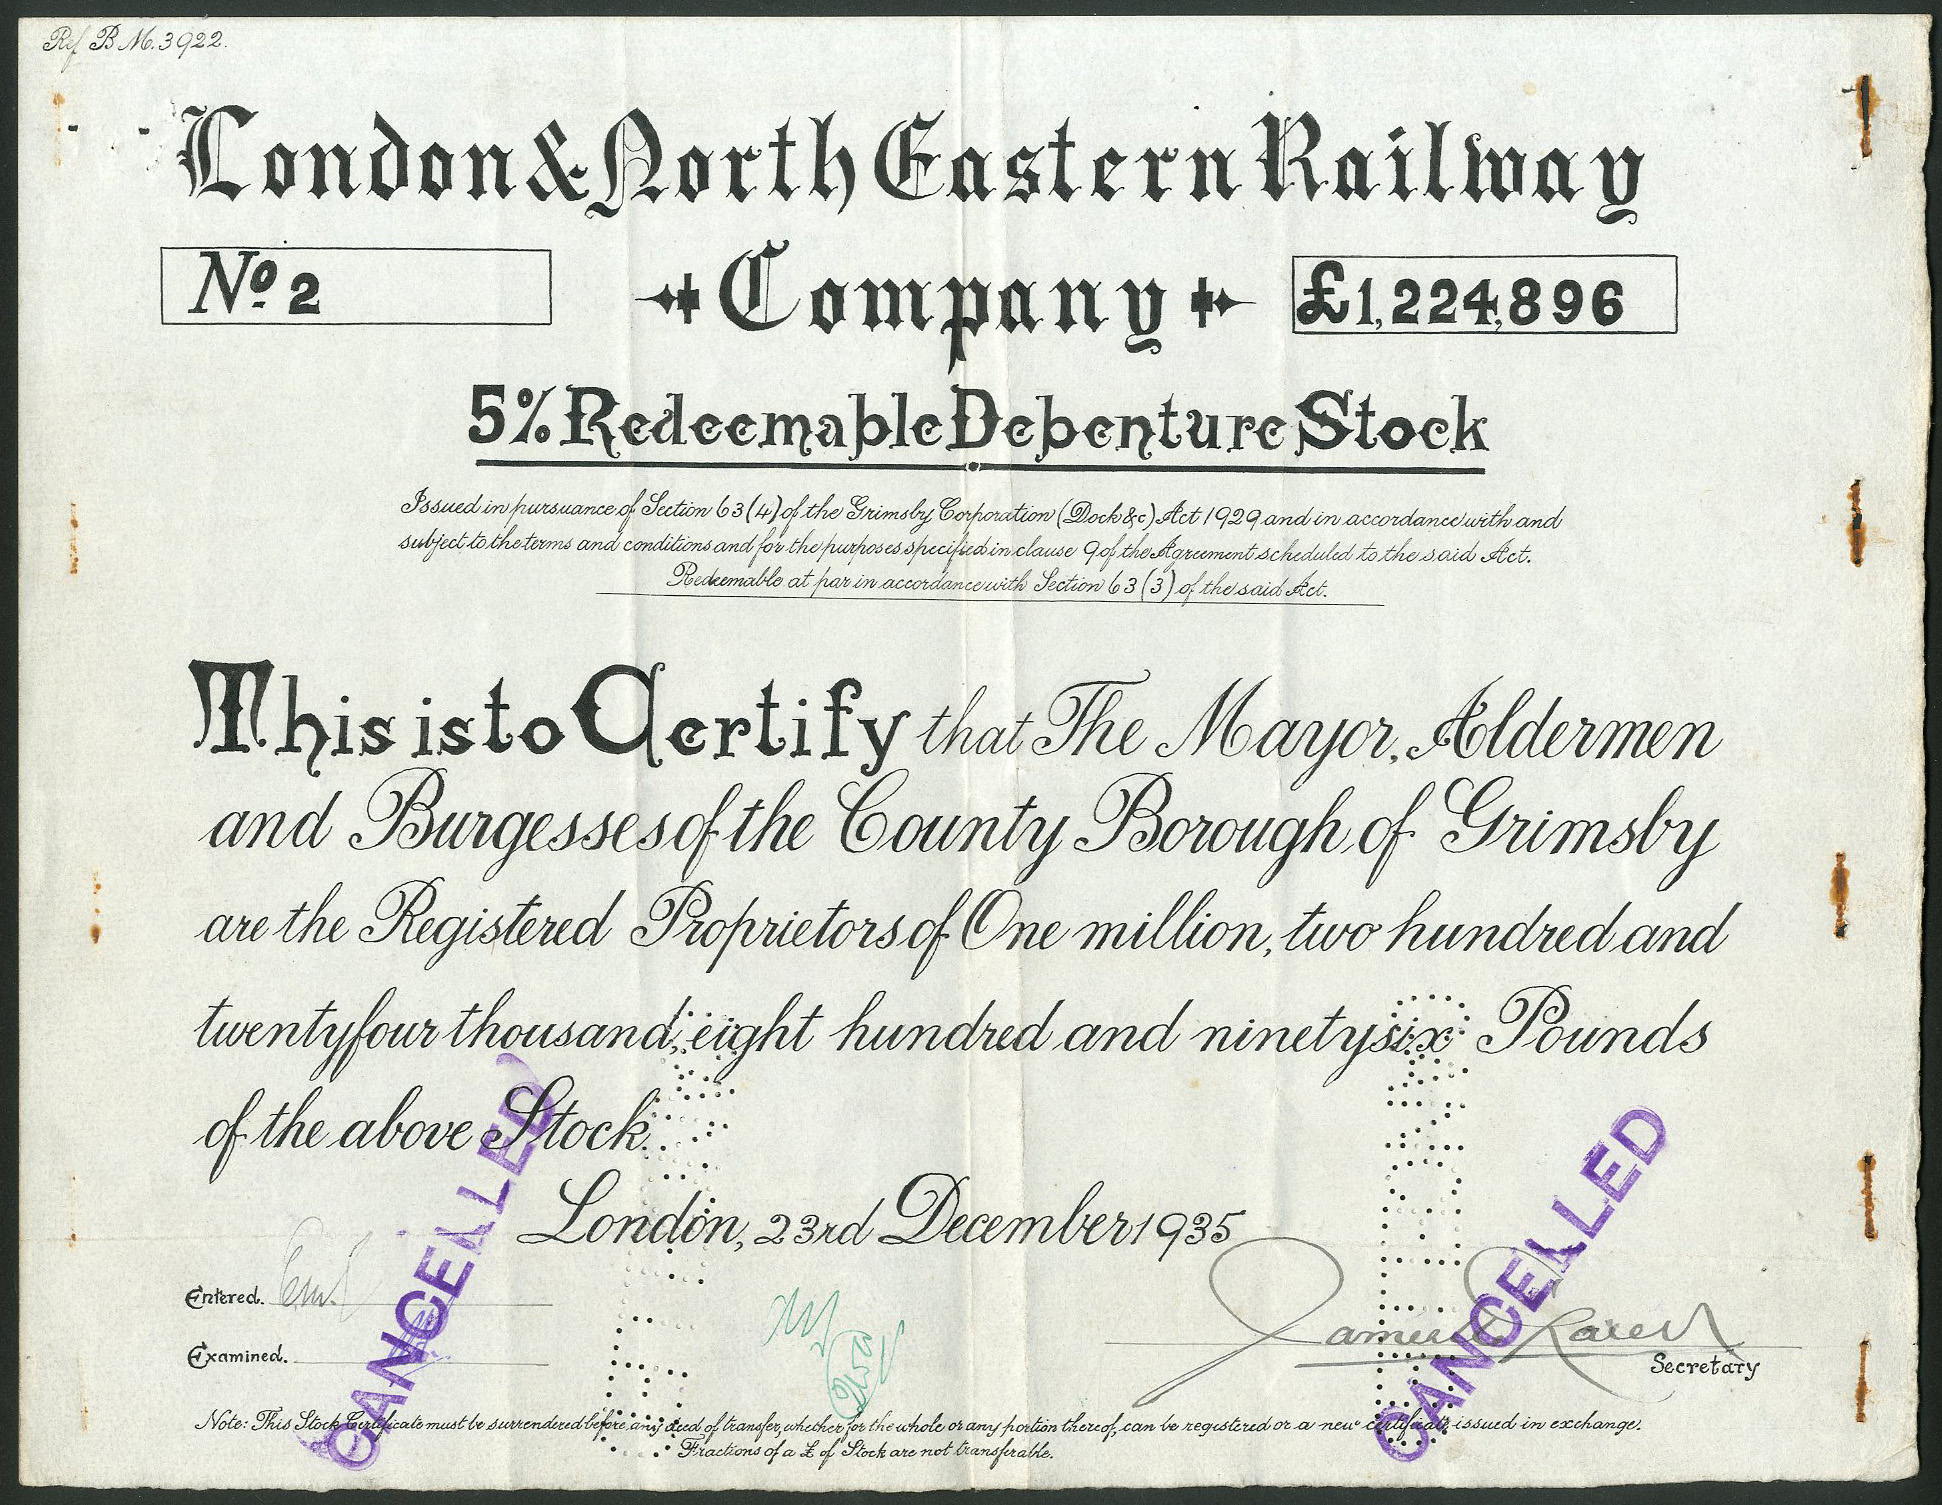 Ref B M. 3922.
London & North Eastern Railway
Company
No. 2
£1,224,896
5% Redeemable Debenture Stock
Issued in pursuance of Section 63 (4) of the Grimsby Corporation (Dock &c) Act 1929 and in accordance with and
subject to the terms and conditions and for the purposes specified in clause 9 of the Agreement scheduled to the said Act.
Redeemable at par in accordance with Section 63 (3) of the said Act.
This is to Certify that The Mayor, Aldermen
and Burgesses of the County Borough of Grimsby
are the Registered Proprietors of One million, two hundred and
twentyfour thousand, eight hundred and ninetysix Pounds
of the above Stock.
London, 23rd December 1935
Entered.
Examined.
Secretary
CANCELLED
CANCELLED
Note: This Stock Certificate must be surrendered before any deed of transfer, whether for the whole or any portion thereof, can be registered or a new certificate issued in exchange.
Fractions of a £ of Stock are not transferable.